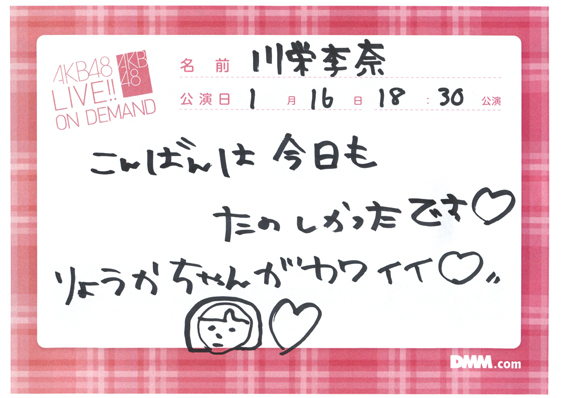 AKB48
LIVE!!
ON DEMAND
AKB
48
名前 川栄李奈
公演日 1月16日 18:30公演
こんばんは 今日も
たのしかったです♡
りょうかちゃんがカワイイ♡!!
DMM.com